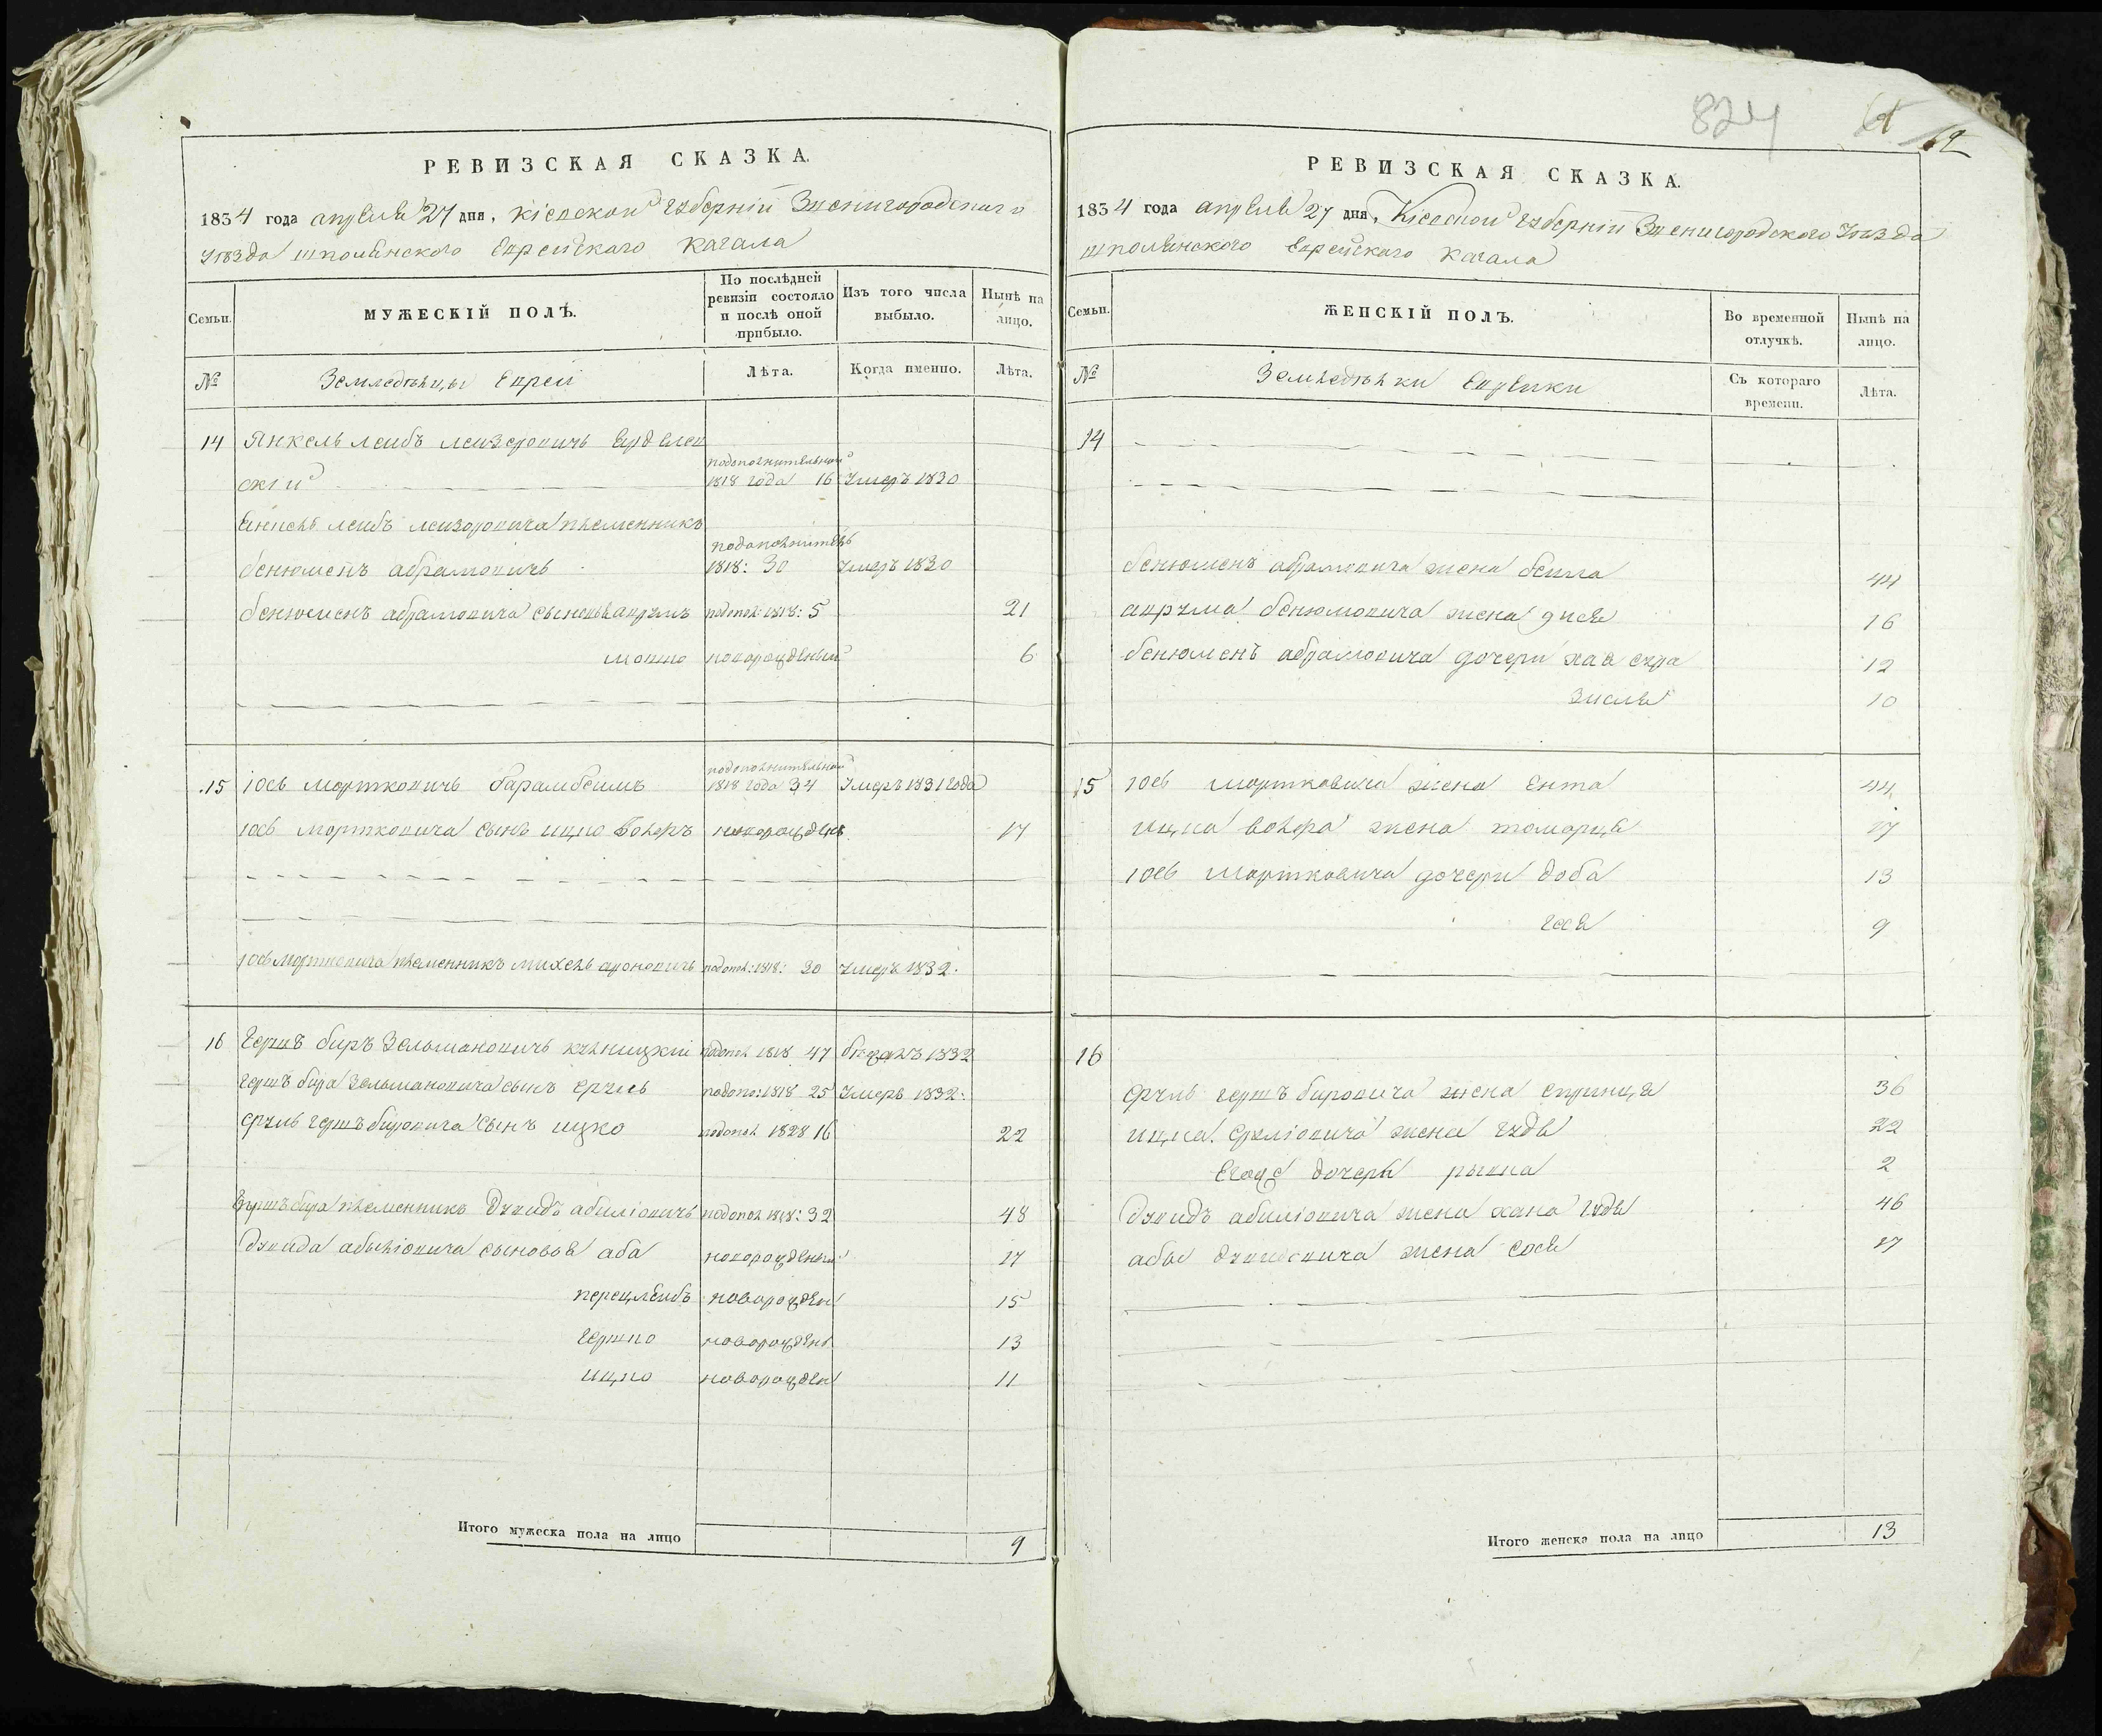 РЕВИЗСКАЯ СКАЗКА.
1834 года апреля 27 дня, Кіевской Губерніи Звенигородского
Уѣзда Шполянского Еврейского Кагала
Семьи.
МУЖЕСКІЙ ПОЛЪ.
По послѣдней ревизіи состояло и послѣ оной прибыло.
Изъ того числа выбыло.
Нынѣ на лицо.
№
Земледѣльцы Евреи
Лѣта.
Когда именно.
Лѣта.
14 Янкель леибъ леизеровичь
скіи 1818 года 16 Умеръ 1830
леибъ леизоровича племенникъ
бенюменъ абрамовичь 1818: 30 Умеръ 1830
бенюменъ абрамовича сыновья аврумъ подопол: 1818: 5 21
мошко новорожденый 6
15 іось мортковичь барамбеимъ подополнительной 1818 года 34 Умеръ 1831 года
іось мортковича сынъ ицко волфъ новорожденъ 17
іось мортковича племенникъ михель ароновичь подопол: 1818: 20 Умеръ 1832.
16 Гершъ биръ Зельмановичь подопол 1818 47 1832
гершъ бира зельмановича сынъ сруль подопол: 1818 25 Умеръ 1832:
сруль гершъ бировича сынъ ицко подопол 1828 16 22
Гершъ бира племенникъ Дувидъ абиліовичь подопол 1818: 32 48
Дувида абиліовича сыновья аба новорожденый 17
перецлеибъ новорожден 15
гершко новорожденъ 13
ицко новорожден 11
Итого мужеска пола на лицо 9
824
62
РЕВИЗСКАЯ СКАЗКА.
1834 года апреля 27 дня, Кіевской Губерніи Звенигородского Уѣзда
Шполянского Еврейского Кагала
Семьи.
ЖЕНСКІЙ ПОЛЪ.
Во временной отлучкѣ.
Нынѣ на лицо.
№
Земледѣлки Еврейки
Съ котораго времени.
Лѣта.
14
бенюменъ абрамовича жена беила 44
аврума бенюмовича жена 16
бенюменъ абрамовича дочери хая сура 12
зисля 10
15 іось мортковича жена Ента 44
ицка волфа жена томарця 17
іось мортковича дочери доба 13
9
16
сруль гершъ бировича жена спринця 36
ицка сруліовича жена гудя 22
Егоже дочерь рывка 2
Дувидъ абиліовича жена хана гудя 46
абы дувидовича жена сося 17
Итого женска пола на лицо 13